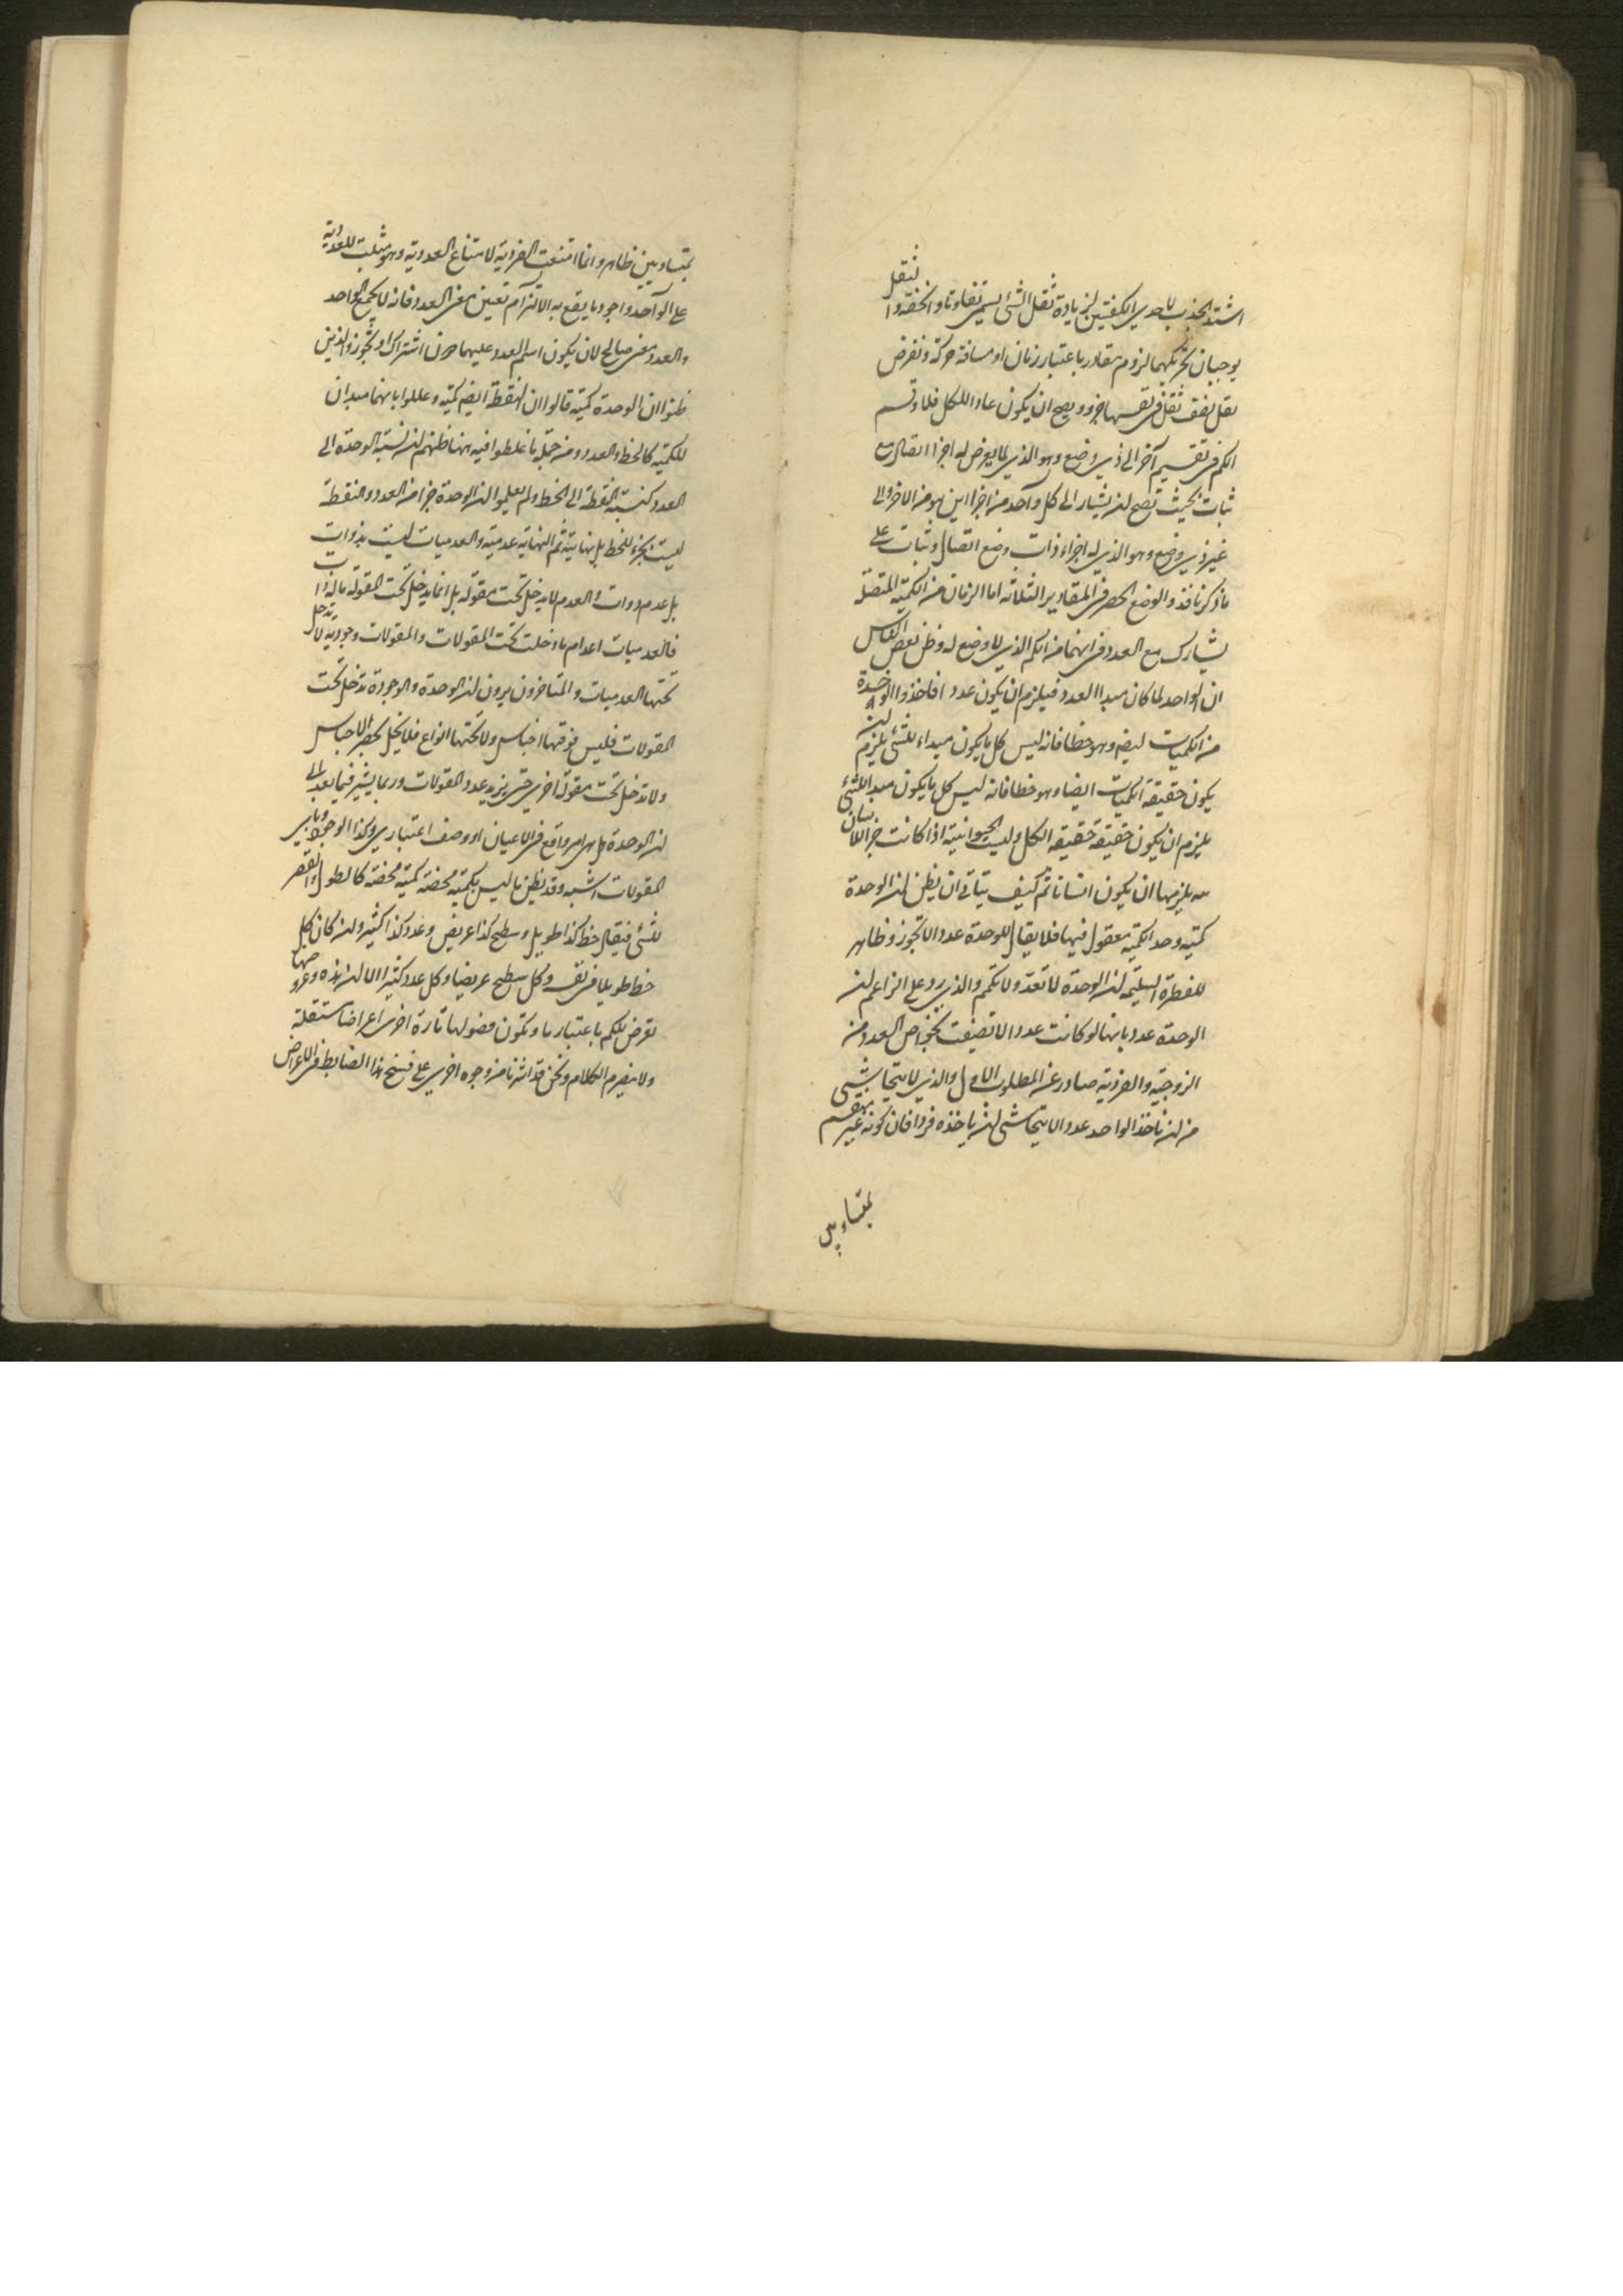 اشتد الجذب لاحدى الكفتين لزيادة ثقل الشئ يسمى تفاوتا والخفة والثقل
يوجبان لحركتهما لزوم مقادر باعتبار زمان او مسافة حركة ونفرض
ثقل نصف ثقل فى نفسها جزو ويصح ان يكون عادا للكل فلا وقسم
الكم فى تقسيم آخر الى ذى وضع وهو الذى لما يعرض له اجزا اتصال مع
ثبات بحيث تصح ان يشار الى كل واحد من اجزا اين هو من الاخر والى
غير ذى وضع وهو الذى له اجزاء ذات وضع اتصال وثبات على
ما ذكرنا فذو الوضع انحصر فى المقادير الثلاثة اما الزمان من الكمية المتصلة
يشارك مع العدد فى انهما من الكم الذى لا وضع له وظن بعض الناس
ان الواحد لما كان مبدا العدد فيلزم ان يكون عددا فاخذوا الوحدة
من الكميات ايضا وهو خطا فانه ليس كل ما يكون مبداء للشئ يلزم ان
يكون حقيقة الكميات ايضا وهو خطا فانه ليس كل ما يكون مبدا للشئ
يلزم ان يكون حقيقة حقيقة الكل وليست الحيوانية اذا كانت جز الانسان
يلزمها ان يكون انسانا ثم كيف يتاتى ان يظن ان الوحدة
كمية وحد الكمية معقول فيها فلا يقال للوحدة عدد الا بتجوز وظاهر
للفطرة السليمة ان الوحدة لا تعد ولا تكمم والذى رد على الزاعم ان
الوحدة عدد بانها لو كانت عددا لاتصفت بخواص العدد من
الزوجية والفردية صادر عن المطلوب الاول والذى لا يتحاشى
من ان ياخذ الواحد عددا لا يتحاشى ان ياخذه فردا فان كونه غير منقسم
بمتساويين
بمتساويين ظاهر وانما امتنعت الفردية لامتناع العددية وهو مثبت للعددية
على الواحد واجود ما يقع به الالتزام تعيين معنى العدد فانه لا يجمع الواحد
والعدد معنى صالح لان يكون اسم العدد عليهما دون اشتراك او تجوز والذين
ظنوا ان الوحدة كمية قالوا ان النقطة ايضا كمية وعللوا بانهما مبدان
للكمية كالخط والعدد ومن جملة ما غلطوا فيه هنا ظنهم ان نسبة الوحدة الى
العدد كنسبة النقطة الى الخط ولم يعلموا ان الوحدة جزا من العدد والنقطة
ليست بجزء للخط بل نهايته ثم النهاية عدمية والعدميات ليست بذوات
بل عدم ذوات والعدم لا يدخل تحت مقولة بل انما يدخل تحت المقولة ما له ذات
فالعدميات اعدام ما دخلت تحت المقولات والمقولات وجودية لا تدخل
تحتها العدميات والمتاخرون يرون ان الوحدة والوجودة تدخل تحت
المقولات فليس فوقها اجناس ولا تحتها انواع فلا يخل بحصر الاجناس
ولا تدخل تحت مقولة اخرى حتى يزيد عدد المقولات وربما يشير فيما بعد الى
ان الوحدة هل هى امر واقع فى الاعيان او وصف اعتبارى وكذا الوجود وباى
المقولات اشبه وقد يظن ما ليس بكمية محضة كمية محضة كالطول والقصر
للشئ فيقال خط كذا طويل وسطح كذا عريض وعدد كذا كثير وان كان كل
خط طويلا فى نفسه وكل سطح عريضا وكل عدد كثيرا الا ان هذه وعروضها
تعرض للكم باعتبار ما وتكون فصولها تارة اخرى اعراضا مستقلة
ولا ينصرم الكلام ونحن قد اشرنا من وجوه اخرى على فسخ هذا الضابط فى الاعراض